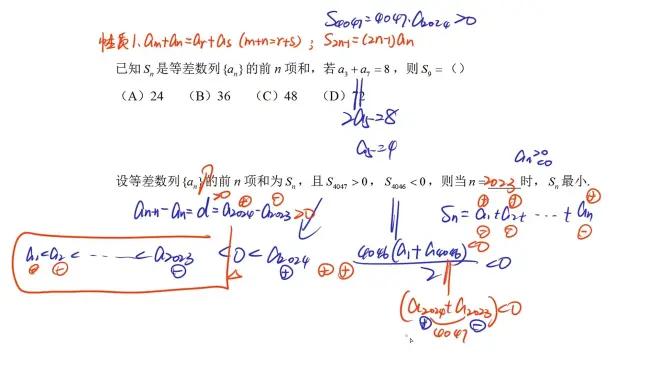 S4047=4047·a2024>0
性质1.am+an=ar+as (m+n=r+s) ; S2n-1=(2n-1)an
已知 Sn 是等差数列{an}的前 n 项和，若 a3+a7=8，则 S9=（）
（A）24 （B）36 （C）48 （D）72
2a5=8
a5=4
an>0 <0
设等差数列{an}的前 n 项和为 Sn，且 S4047>0，S4046<0，则当 n=2023时，Sn 最小.
an+1-an=d=a2024-a2023>0
Sn=a1+a2+ ··· + an
a1<a2< ······ <a2023 <0<a2024
4046(a1+a4046)/2<0
(a2024+a2023)<0
4047